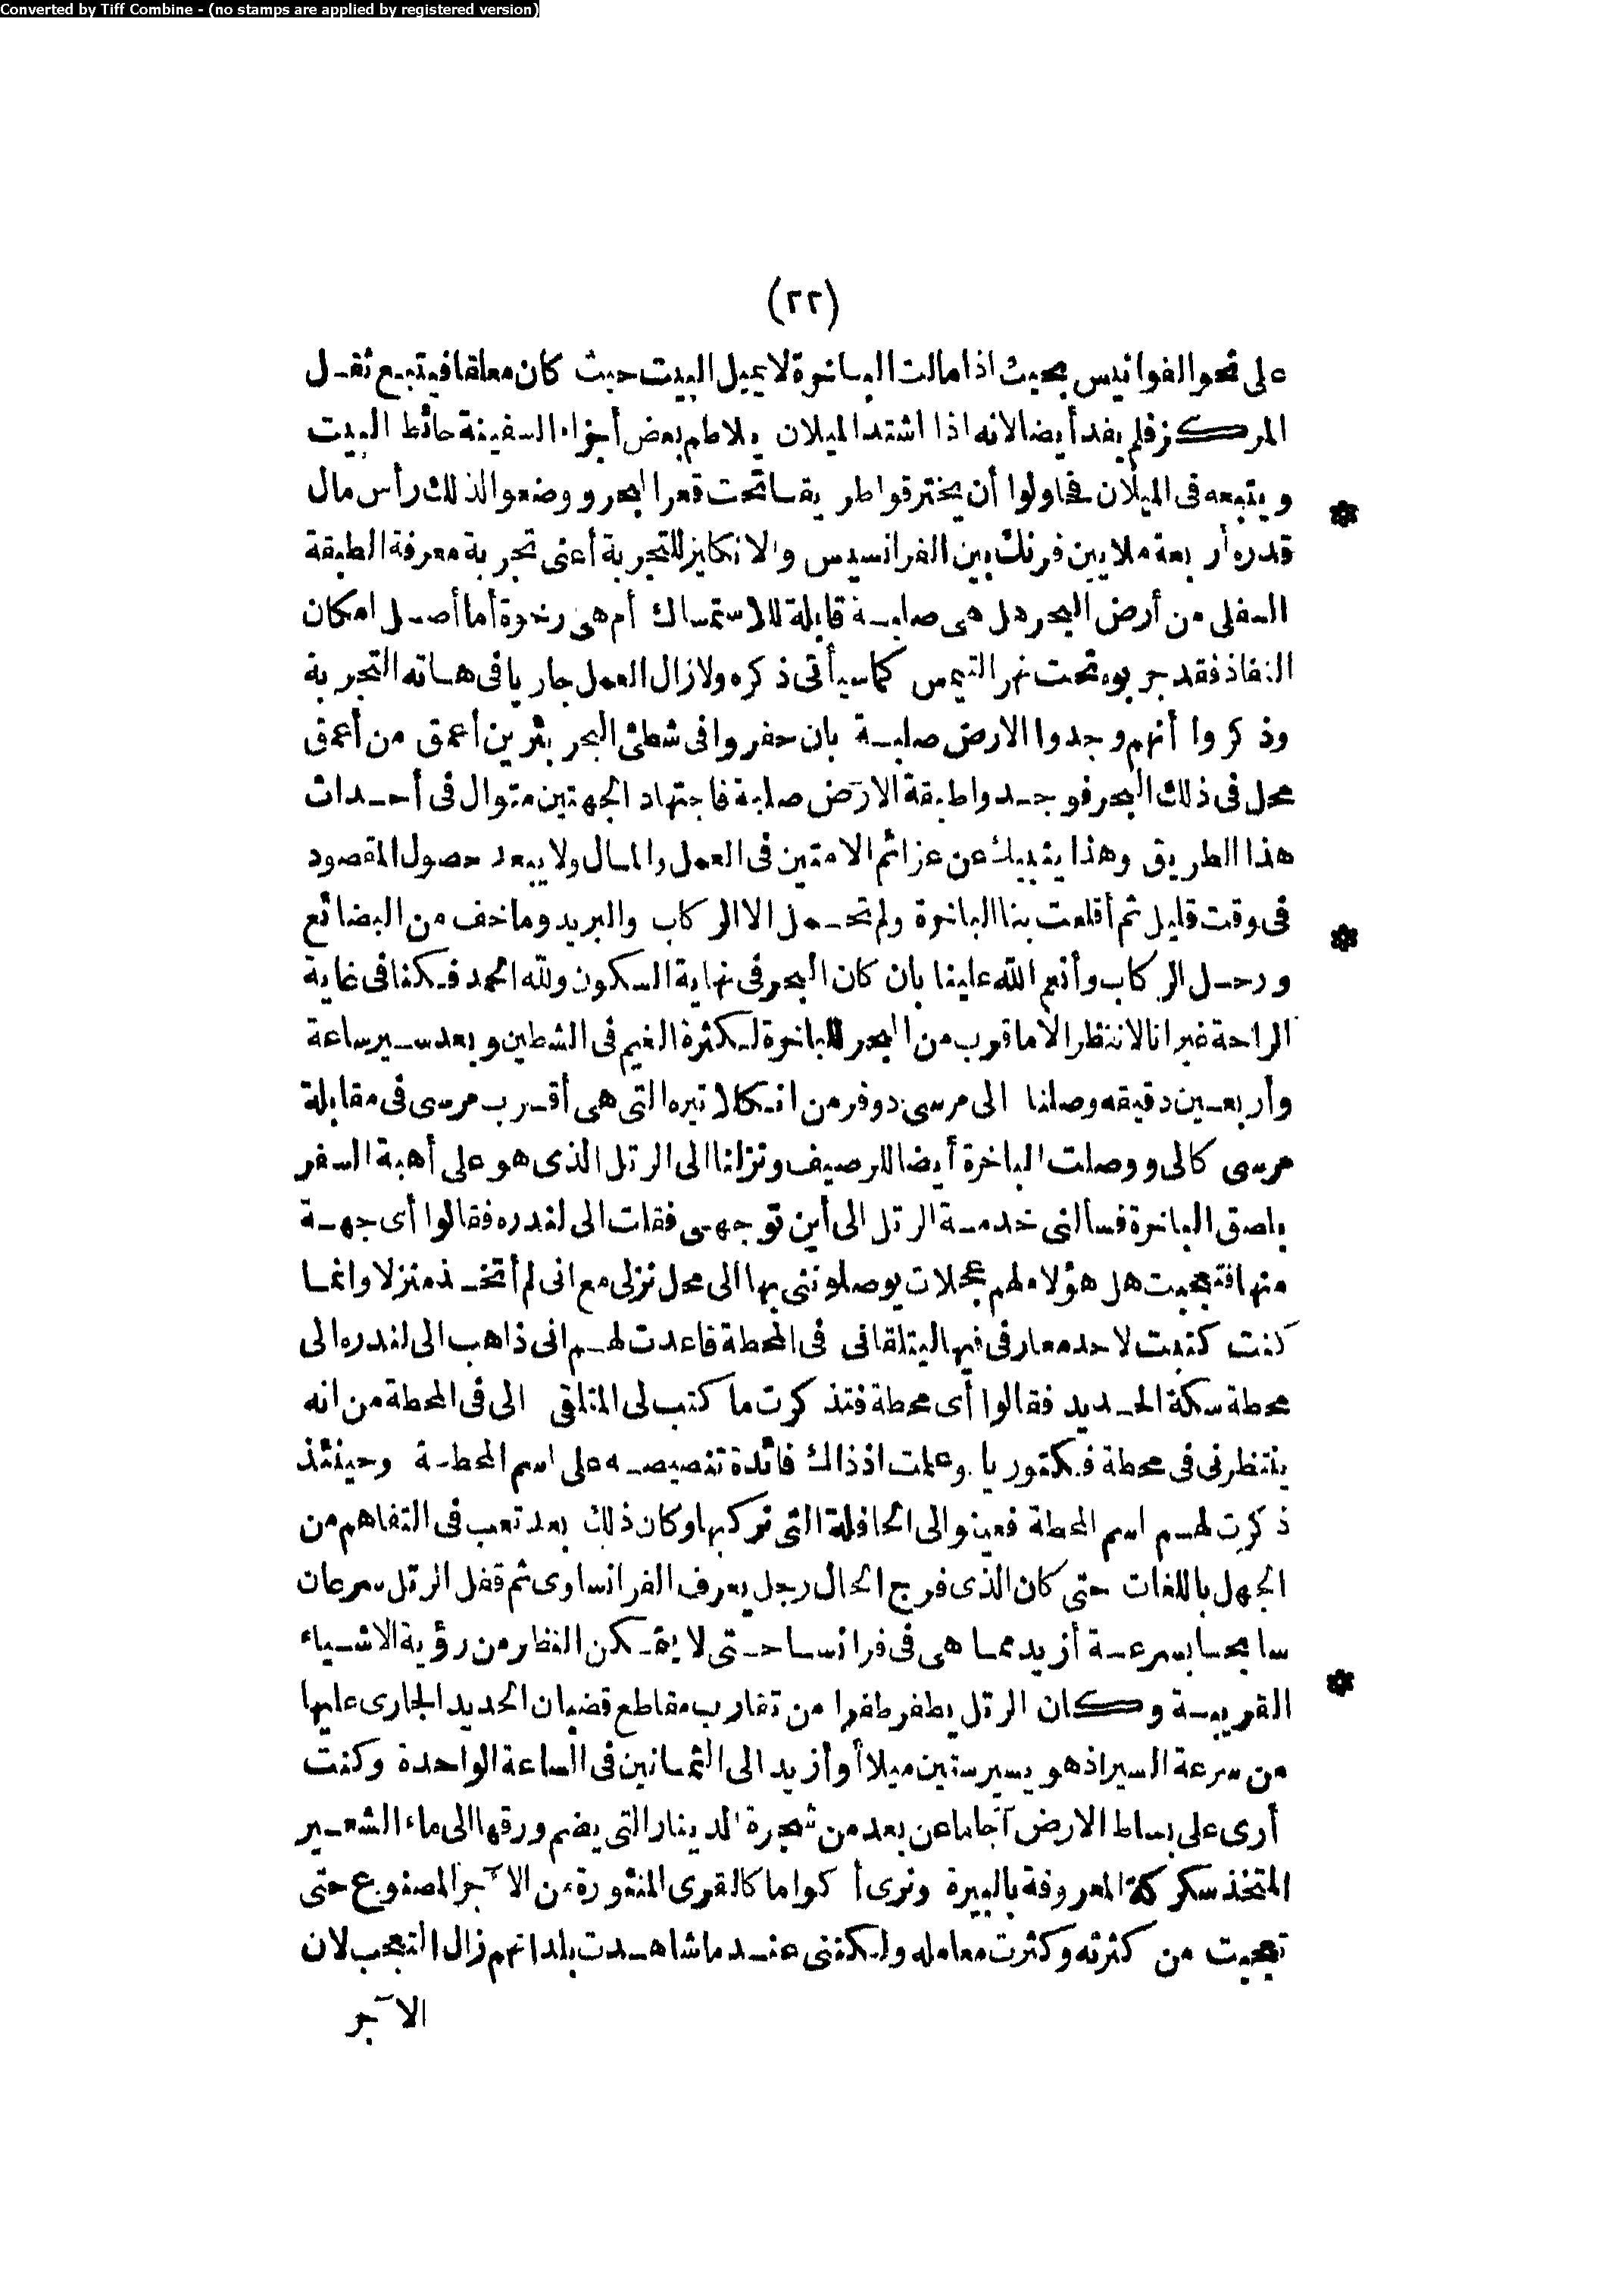 Converted by Tiff Combine - (no stamps are applied by registered version)
(٢٢)
على نحو الفوانيس بحيث اذا مالت الباخرة لا يميل البيت حيث كان معلقا فيتبع ثقل
المركز فلم يفد أيضا لانه اذا اشتد الميلان يلاطم بعض أجزاء السفينة حائط البيت
ويتبعه فى الميلان فحاولوا أن يخترقوا طريقا تحت قعر البحر ووضعوا لذلك رأس مال
قدره أربعة ملايين فرنك بين الفرانسيس والانكليز للتجربة أعنى تجربة معرفة الطبقة
السفلى من أرض البحر هل هى صلبة قابلة للاستمساك أم هى رخوة أما أصل امكان
النفاذ فقد جربوه تحت نهر التيمس كما سيأتى ذكره ولازال العمل جاريا فى هاته التجربة
وذكروا أنهم وجدوا الارض صلبة بان حفروا فى شطئ البحر بئرين أعمق من أعمق
محل فى ذلك البحر فوجدوا طبقة الارض صلبة فاجتهاد الجهتين متوال فى أحداث
هذا الطريق وهذا ينبيك عن عزائم الامتين فى العمل والمال ولا يبعد حصول المقصود
فى وقت قليل ثم أقلعت بنا الباخرة ولم تحمل الا الركاب والبريد وما خف من البضائع
ورحل الركاب وأنعم الله علينا بان كان البحر فى نهاية السكون ولله الحمد فكنا فى غاية
الراحة غير انا لا ننظر الا ما قرب من البحر للباخرة لكثرة الغيم فى الشطين وبعد سير ساعة
وأربعين دقيقه وصلنا الى مرسى دوفر من انكلاتيره التى هى أقرب مرسى فى مقابلة
مرسى كالى ووصلت الباخرة أيضا للرصيف ونزلنا الى الرتل الذى هو على أهبة السفر
بلصق الباخرة فسألنى خدمة الرتل الى أين توجهى فقلت الى لندره فقالوا أى جهة
منها فتعجبت هل هؤلاء لهم عجلات يوصلوننى بها الى محل نزلى مع انى لم أتخذ منزلا وانما
كنت كتبت لاحد معارفى فيها ليتلقانى فى المحطة فاعدت لهم انى ذاهب الى لندره الى
محطة سكة الحديد فقالوا أى محطة فتذكرت ما كتب لى المتلقى الى فى المحطة من انه
ينتظرنى فى محطة فكتوريا وعلمت اذ ذاك فائدة تنصيصه على اسم المحطة وحينئذ
ذكرت لهم اسم المحطة فعينوا لى الحافلة التى نركبها وكان ذلك بعد تعب فى التفاهم من
الجهل باللغات حتى كان الذى فرج الحال رجل يعرف الفرانساوى ثم قفل الرتل سرعان
سابحا بسرعة أزيد مما هى فى فرانسا حتى لا يتمكن النظار من رؤية الاشياء
القريبة وكان الرتل يطفر طفرا من تقارب مقاطع قضبان الحديد الجارى عليها
من سرعة السير اذ هو يسير ستين ميلا أو أزيد الى الثمانين فى الساعة الواحدة وكنت
أرى على بساط الارض آجاما عن بعد من شجرة الدينار التى يضم ورقها الى ماء الشعير
المتخذ سكركة المعروفة بالبيرة ونرى أكواما كالقرى المنثورة من الآجر المصنوع حتى
تعجبت من كثرته وكثرت معامله ولكننى عندما شاهدت بلدانهم زال التعجب لان
الآجر